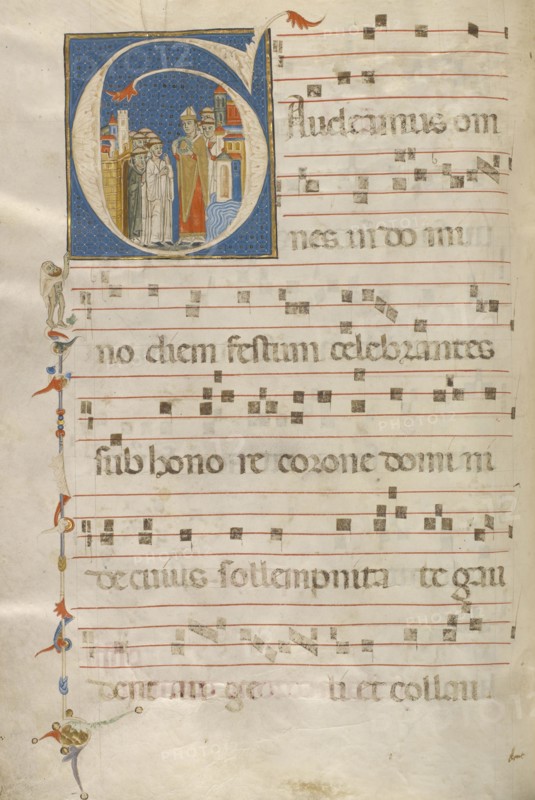 Gaudeamus om
nes in do mi
no diem festum celebrantes
sub hono re corone domini
de cuius sollempnita te gau
dent an ge li et collau